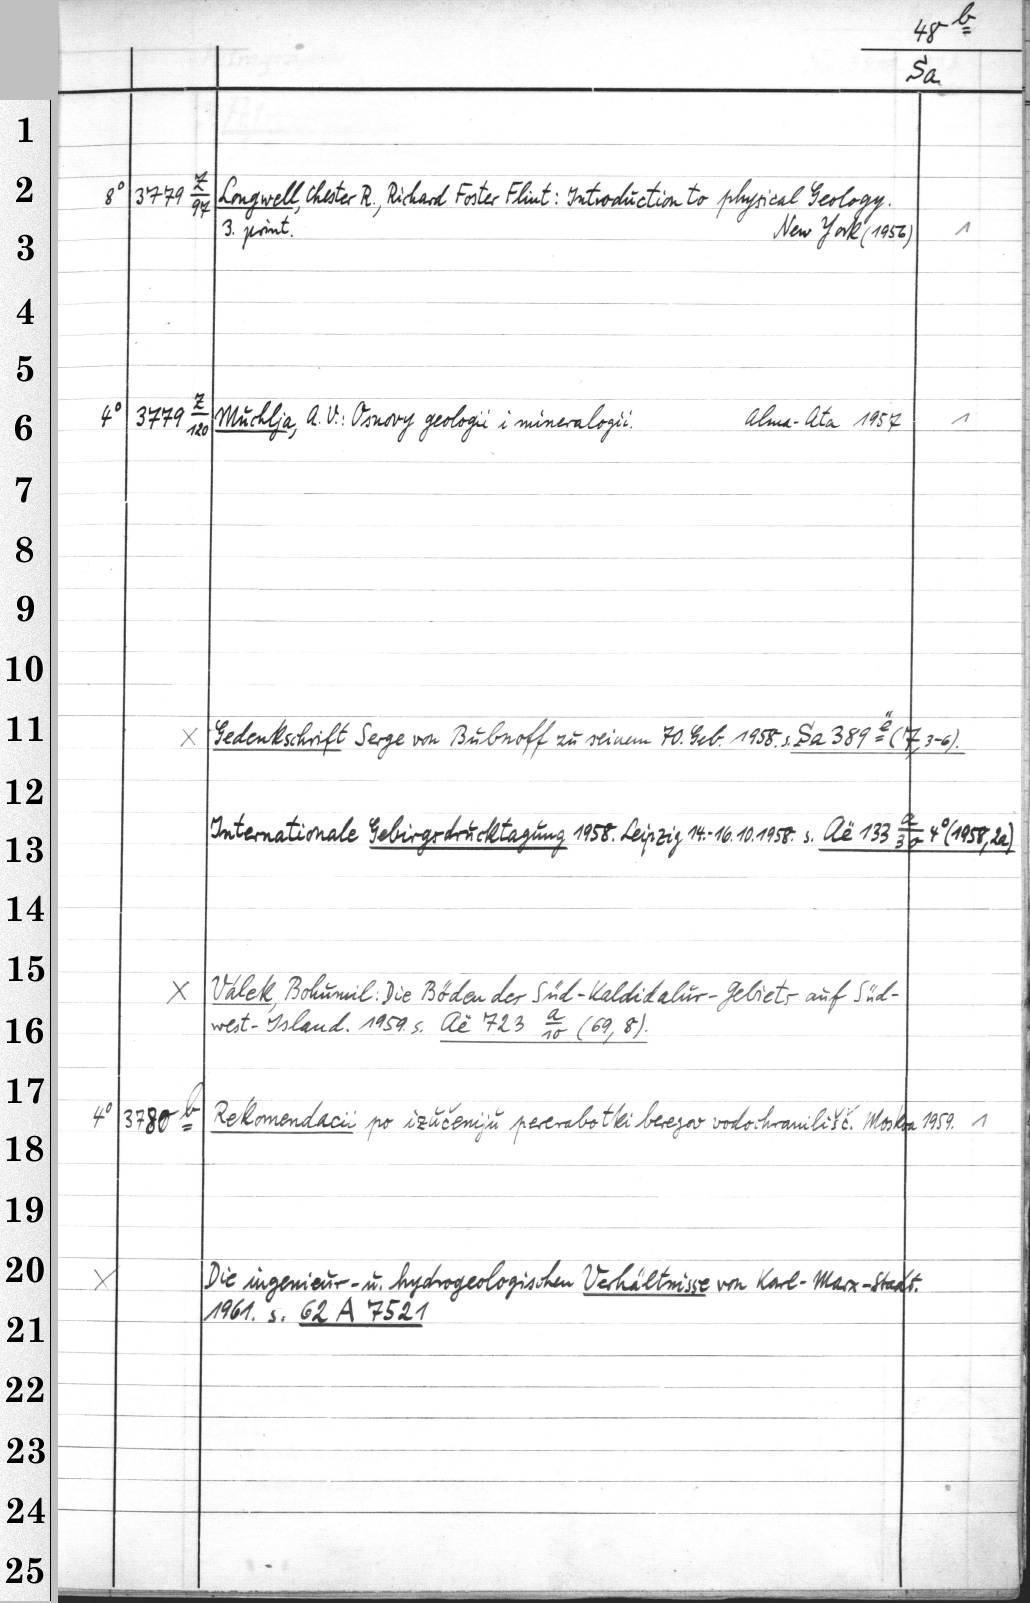 48 b
Sa
1
2
8° 3779 Z/97 Longwell, Chester R., Richard Foster Flint: Introduction to physical Geology.
3. print. New York (1956) 1
3
4
5
6
4° 3779 Z/120 Muchlja, A. V.: Osnovy geologii i mineralogii. Alma-Ata 1957 1
7
8
9
10
11
× Gedenkschrift Serge von Bubnoff zu seinem 70. Geb. 1958. s. Sa 389 (7, 3-6).
12
Internationale Gebirgsdrucktagung 1958. Leipzig 14.-16.10.1958. s. Aë 133 a/30 4° (1958, 2a)
13
14
15
× Válek, Bohumil: Die Böden der Süd-Kaldidalur-Gebiets auf Süd-
west-Island. 1959. s. Aë 723 a/10 (69, 8).
16
17
4° 3780 b Rekomendacii po izučeniju pererabotki beregov vodochranilišč. Moskva 1959. 1
18
19
20
× Die ingenieur- u. hydrogeologischen Verhältnisse von Karl-Marx-Stadt.
1961. s. 62 A 7521
21
22
23
24
25